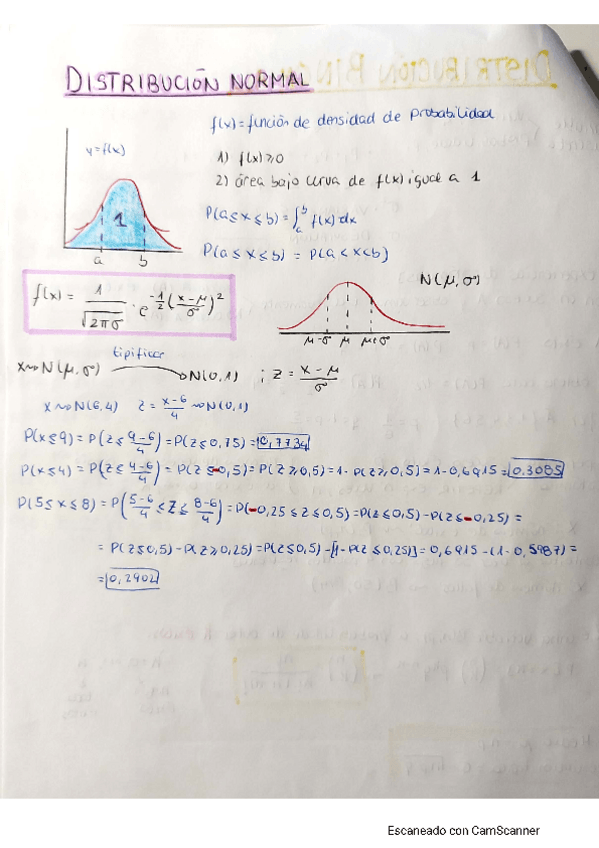 DISTRIBUCIÓN NORMAL
f(x) = función de densidad de probabilidad
y = f(x)
1) f(x) ≥ 0
2) área bajo curva de f(x) igual a 1
1
a b
P(a ≤ x ≤ b) = ∫ₐᵇ f(x) dx
P(a ≤ x ≤ b) = P(a < x < b)
f(x) = 1/√2πσ · e^(-1/2 (x-μ/σ)²)
N(μ, σ)
μ-σ μ μ+σ
tipificar
x ~> N(μ, σ) → N(0, 1) ; z = x - μ / σ
x ~> N(6, 4) z = x-6/4 ~> N(0, 1)
P(x ≤ 9) = P(z ≤ 9-6/4) = P(z ≤ 0,75) = 0,7734
P(x ≤ 4) = P(z ≤ 4-6/4) = P(z ≤ -0,5) = P(z ≥ 0,5) = 1 - P(z ≥ 0,5) = 1 - 0,6915 = 0.3085
P(5 ≤ x ≤ 8) = P(5-6/4 ≤ z ≤ 8-6/4) = P(-0,25 ≤ z ≤ 0,5) = P(z ≤ 0,5) - P(z ≤ -0,25) =
= P(z ≤ 0,5) - P(z ≥ 0,25) = P(z ≤ 0,5) - [1 - P(z ≤ 0,25)] = 0,6915 - (1 - 0,5987) =
= 0,2902
Escaneado con CamScanner